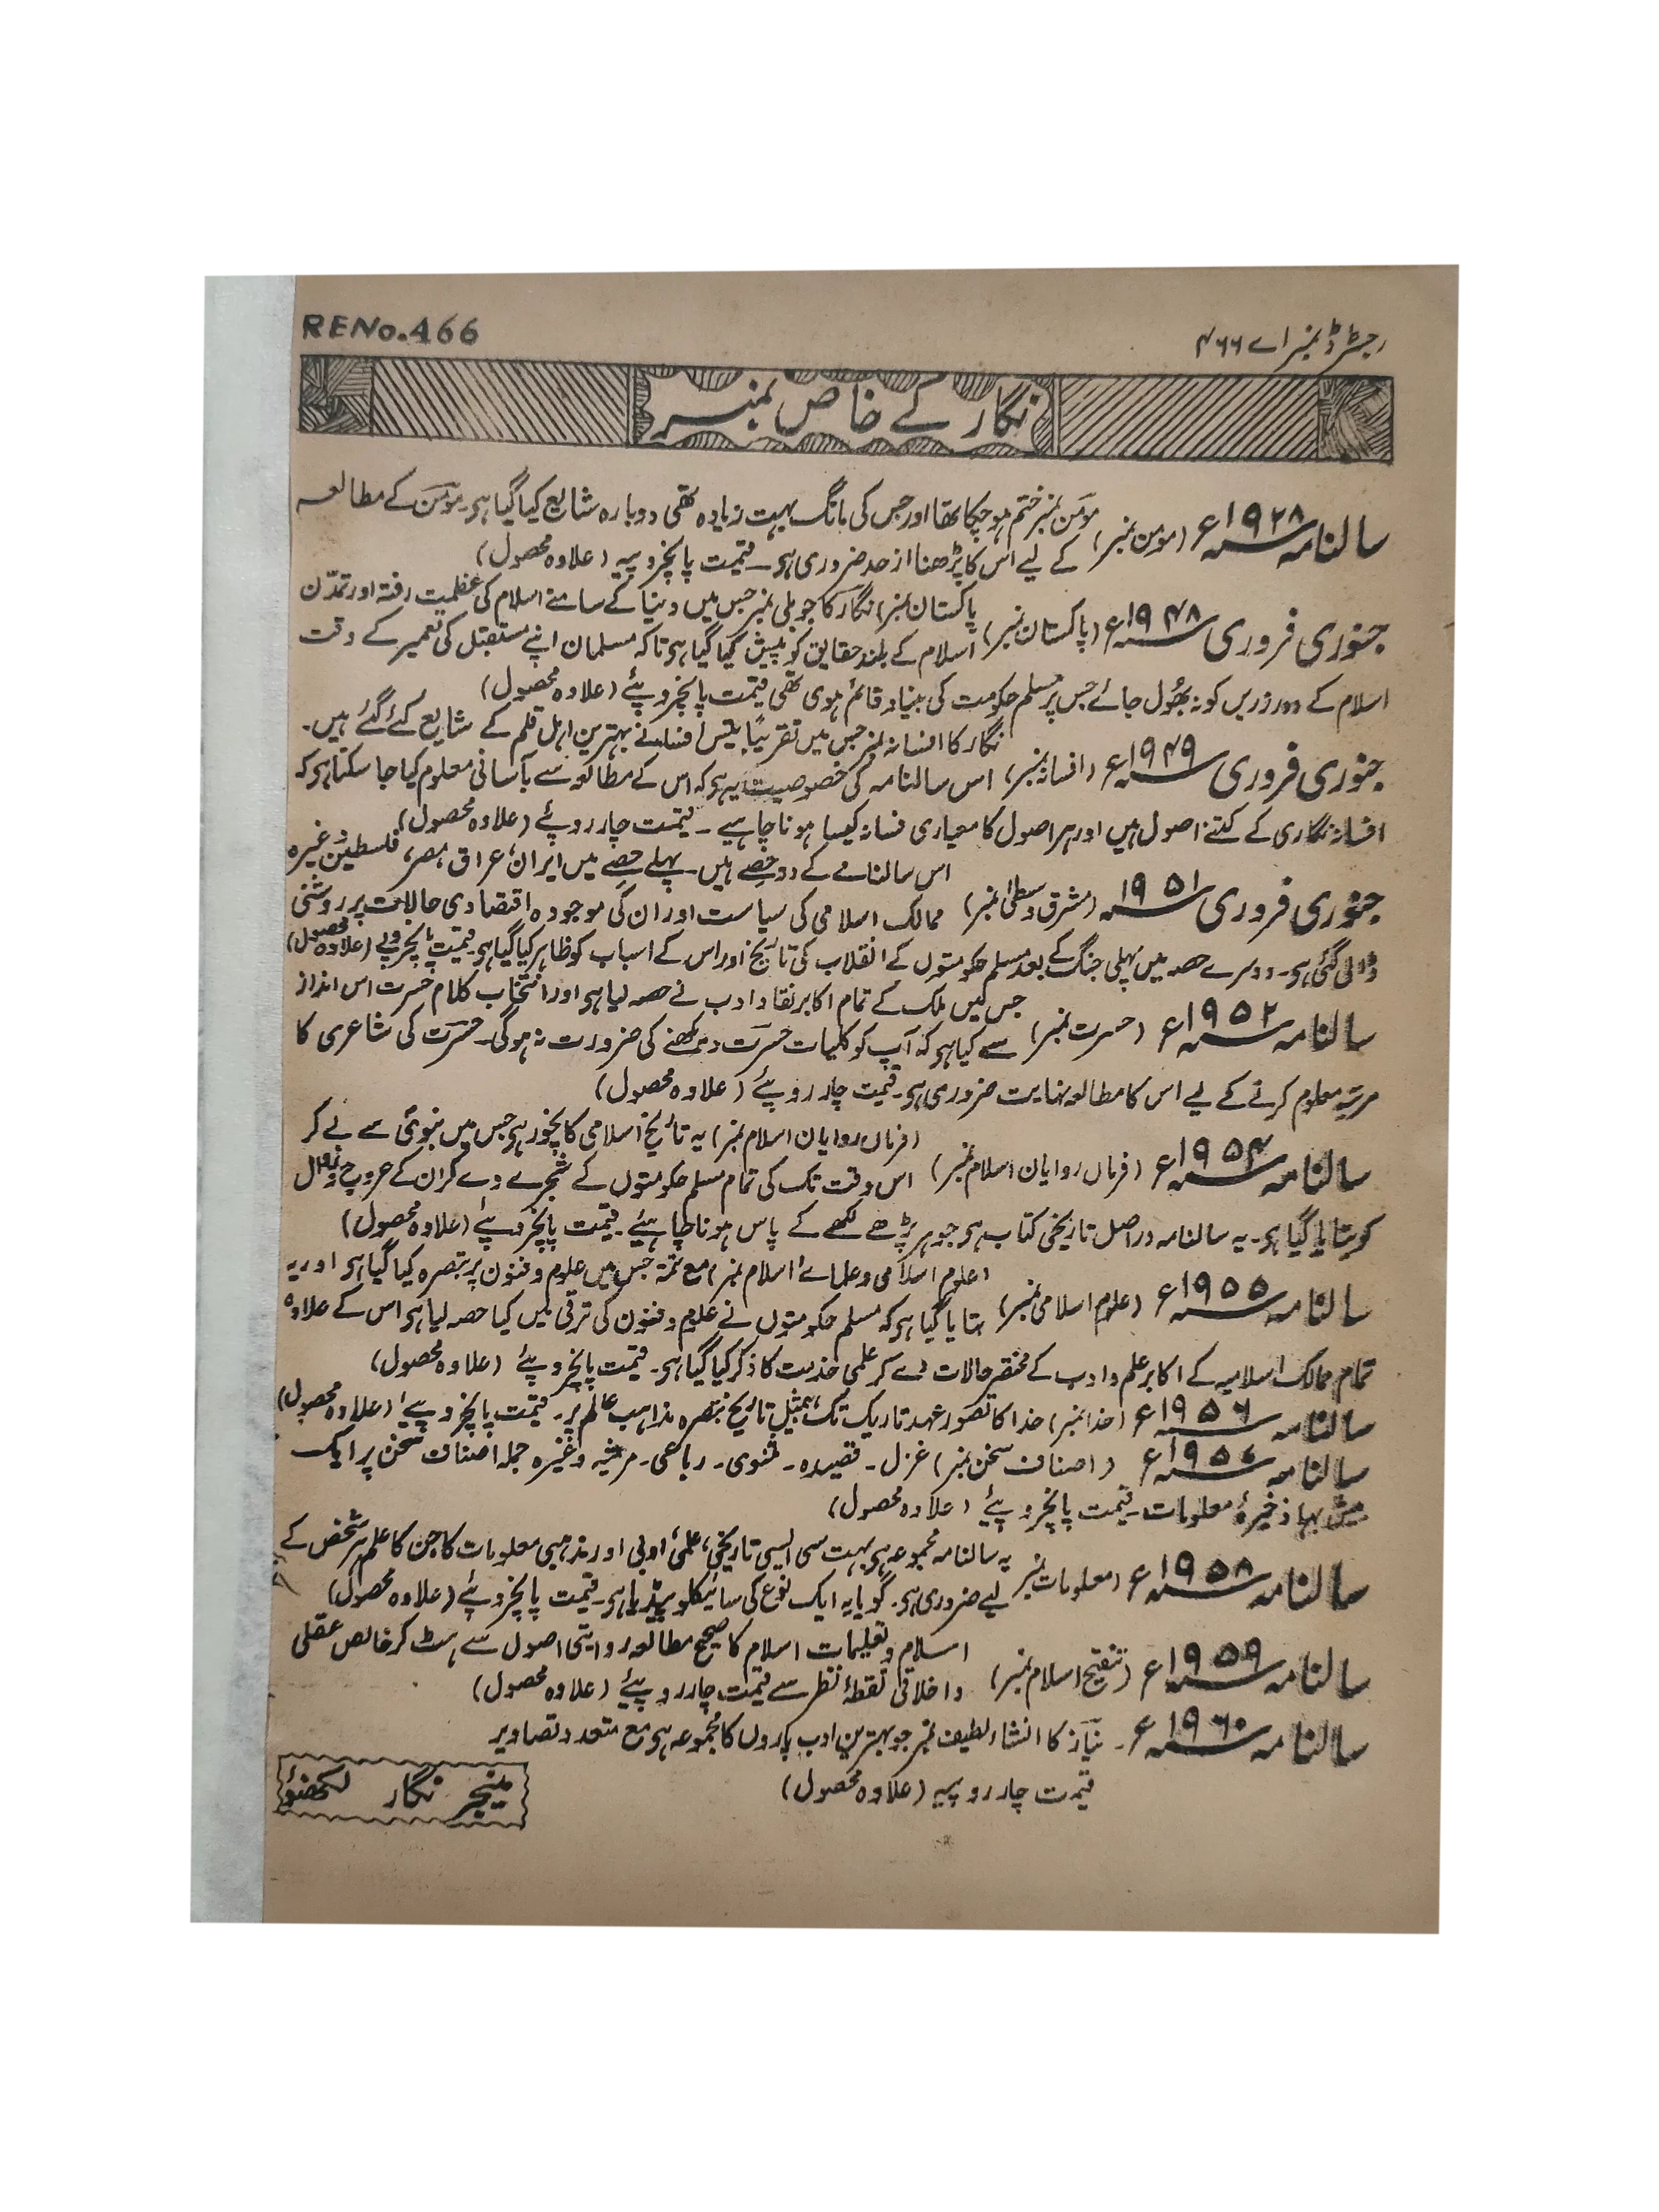 RENo.466
رجسٹرڈ نمبر اے ۴۶۶
نگار کے خاص نمبر
مومن نمبر ختم ہو چکا تھا اور جس کی مانگ بہت زیادہ تھی دوبارہ شایع کیا گیا ہی۔ مومن کے مطالعہ
سالنامہ ۱۹۲۸ء (مومن نمبر) کے لیے اس کا پڑھنا از حد ضروری ہی۔ قیمت پانچروپیہ (علاوہ محصول)
پاکستان نمبر) نگار کا جوبلی نمبر جس میں دنیا کے سامنے اسلام کی عظمیت رفتہ اور تمدّن
جنوری فروری ۱۹۴۸ء (پاکستان نمبر) اسلام کے بلند حقایق کو پیش کیا گیا ہی تاکہ مسلمان اپنے مستقبل کی تعمیر کے وقت
اسلام کے دور زریں کو نہ بھُول جائے جس پر مسلم حکومت کی بنیاد قائم ہوی تھی قیمت پانچروپئے (علاوہ محصول)
نگار کا افسانہ نمبر جس میں تقریبًا بیس افسانے بہترین اہل قلم کے شایع کئے گئے ہیں۔
جنوری فروری ۱۹۴۹ء (افسانہ نمبر) اس سالنامہ کی خصوصیت یہ ہی کہ اس کے مطالعہ سے بآسانی معلوم کیا جا سکتا ہی کہ
افسانہ نگاری کے کتنے اصول ہیں اور ہر اصول کا معیاری فسانہ کیسا ہونا چاہیے۔ قیمت چار روپئے (علاوہ محصول)
اس سالنامے کے دو حصے ہیں۔ پہلے حصے میں ایران، عراق، مصر، فلسطین وغیرہ
جنوری فروری ۱۹۵۱ (مشرق وسطیٰ نمبر) ممالک اسلامی کی سیاست اور ان کی موجودہ اقتصادی حالات پر روشنی
ڈالی گئی ہی۔ دوسرے حصہ میں پہلی جنگ کے بعد مسلم حکومتوں کے انقلاب کی تاریخ اور اس کے اسباب کو ظاہر کیا گیا ہی۔ قیمت پانچروپے (علاوہ محصول)
جس میں ملک کے تمام اکابر نقاد ادب نے حصہ لیا ہی اور انتخاب کلام حسرت اس انداز
سالنامہ ۱۹۵۲ء (حسرت نمبر) سے کیا ہی کہ آپ کو کلیات حسرت دیکھنے کی ضرورت نہ ہوگی۔ حسرت کی شاعری کا
مرتبہ معلوم کرنے کے لیے اس کا مطالعہ نہایت ضروری ہی۔ قیمت چار روپئے (علاوہ محصول)
(فرماں روایان اسلام نمبر) یہ تاریخ اسلامی کا نچوڑ ہی جس میں نبویؐ سے لے کر
سالنامہ ۱۹۵۴ء (فرماں روایان اسلام نمبر) اس وقت تک کی تمام مسلم حکومتوں کے شجرے دے کر ان کے عروج و زوال
کو بتایا گیا ہی۔ یہ سالنامہ در اصل تاریخی کتاب ہی جو ہر پڑھے لکھے کے پاس ہونا چاہیئے۔ قیمت پانچروپئے (علاوہ محصول)
(علوم اسلامی و علمائے اسلام نمبر) مع تتمۃ جس میں علوم و فنون پر تبصرہ کیا گیا ہی اور یہ
سالنامہ ۱۹۵۵ء (علوم اسلامی نمبر) بتایا گیا ہی کہ مسلم حکومتوں نے علوم و فنون کی ترقی میں کیا حصہ لیا ہی اس کے علاوہ
تمام ممالک اسلامیہ کے اکابر علم و ادب کے مختصر حالات دے کر علمی خدمت کا ذکر کیا گیا ہی۔ قیمت پانچروپئے (علاوہ محصول)
سالنامہ ۱۹۵۶ء (خدا نمبر) خدا کا تصور عہد تاریک تک، بمثیل تاریخ تبصرہ مذاہب عالم پر۔ قیمت پانچروپیے (علاوہ محصول)
سالنامہ ۱۹۵۷ء (اصناف سخن نمبر) غزل۔ قصیدہ۔ مثنوی۔ رباعی۔ مرثیہ وغیرہ جملہ اصناف سخن پر ایک
بیش بہا ذخیرۂ معلومات۔ قیمت پانچروپئے (علاوہ محصول)
یہ سالنامہ مجموعہ ہی بہت سی ایسی تاریخی، علمی، ادبی اور مذہبی معلومات کا جن کا علم ہر شخص کے
سالنامہ ۱۹۵۸ء (معلومات نمبر) لیے ضروری ہی۔ گویا یہ ایک نوع کی سائیکلوپیڈیا ہی۔ قیمت پانچروپئے (علاوہ محصول)
اسلام و تعلیمات اسلام کا صحیح مطالعہ روایتی اصول سے ہٹ کر خالص عقلی
سالنامہ ۱۹۵۹ء (تنقیح اسلام نمبر) و اخلاقی نقطۂ نظر سے قیمت چار روپئے (علاوہ محصول)
سالنامہ ۱۹۶۰ء۔ نیاز کا انشاء لطیف نمبر جو بہترین ادب پاروں کا مجموعہ ہی مع متعدد تصاویر
قیمت چار روپیہ (علاوہ محصول)
منیجر نگار لکھنؤ